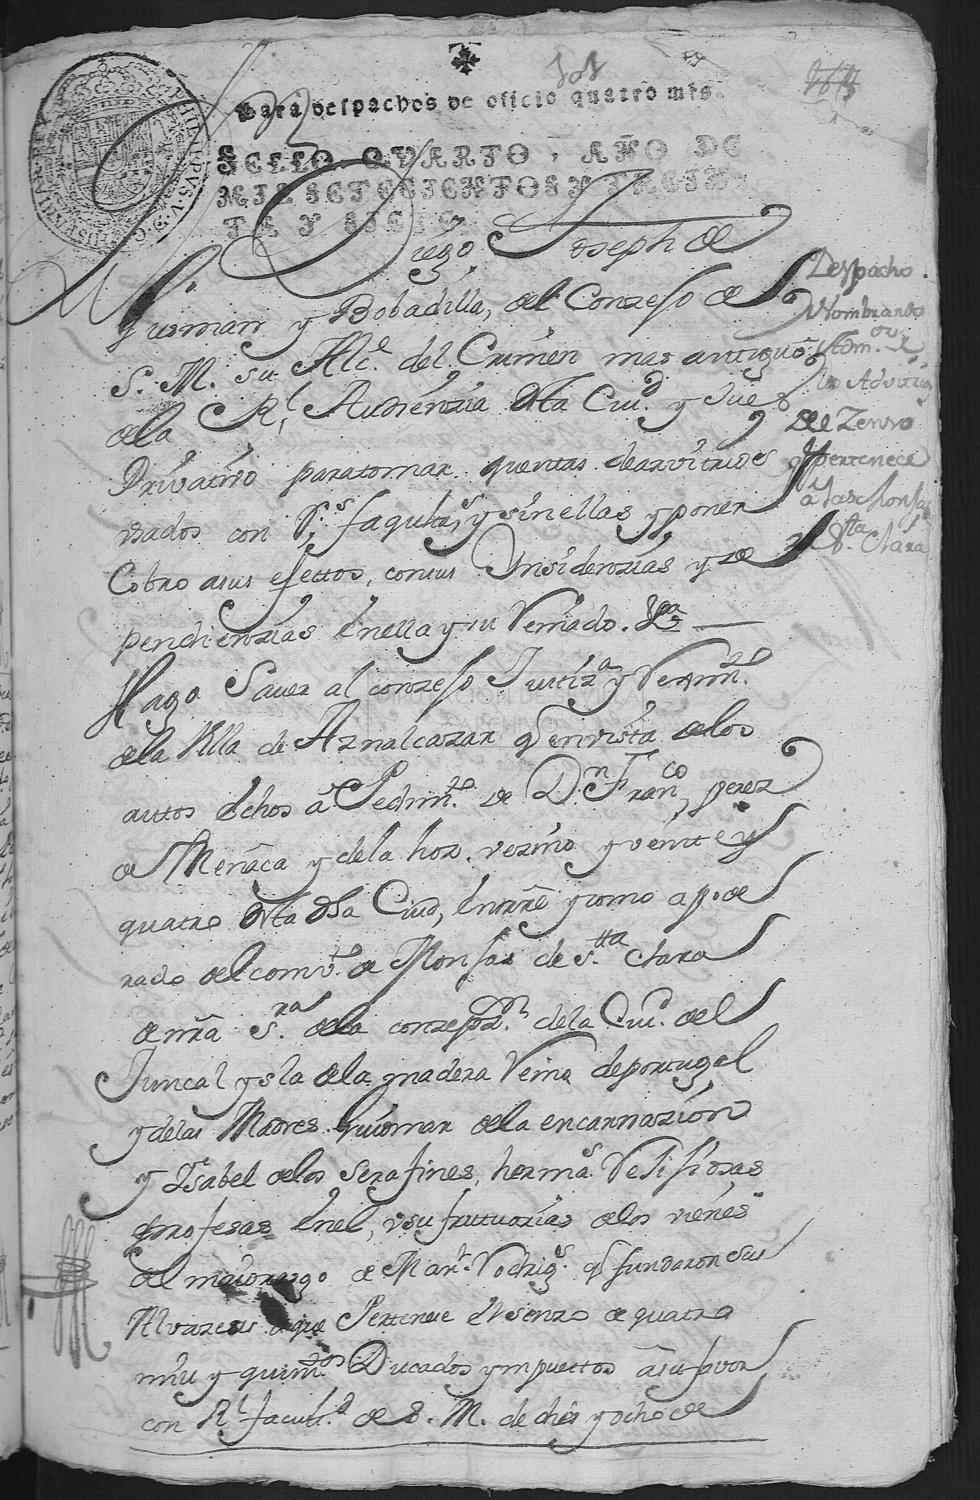 Para despachos de oficio quatro mrs.
SELLO QVARTO, AÑO DE
MIL SETECIENTOS Y TREIN-
TA Y SEIS.
PHILIPPVS V D G
Diego Joseph de
Gusman y Bobadilla, del Conzejo de
S. M. su Alc.e del Crimen mas antiguo
de la Rl. Audienzia desta Ciud. y Juez
Privativo para tomar quentas de arvitrios
vsados con Rs. faqultas y sin ellas y poner
Cobro a sus efettos, con sus Ynsidenzias y de
pendienzias en ella y su Reinado. &a
Hago Saver al conzejo Justiza y Reximto.
de la Villa de Aznalcazar q en vista de los
auttos hechos a Pedimto. de Dn. Franco. perez
de Menaca y de la hoz. vezino y veinte y
quatro desta dha Ciud, en nre y como apode
rado del convto. de Monjas de Sta. Clara
de nra Sra. de la conzepzn. de la Ciud. del
Funcal ysla de la madera Reino de portugal
y de las Madres Guiomar de la encarnazion
y Ysabel de los Serafines, hermas. Relijiosas
profesas en el, vsufrutuarias de los vienes
del maiorazgo de Marn. Rodrigs. q fundaron sus
Alvazeas a que Pertenese el senzo de quatro
mill y quinitos Ducados ympuettos a su favor
con Rl. facultd. de S. M. de dies y ocho de
Despacho.
Nombrando
Adm.or
los Advitrios
del Zenso
q pertenece
a las Monjas
de Sta. Clara